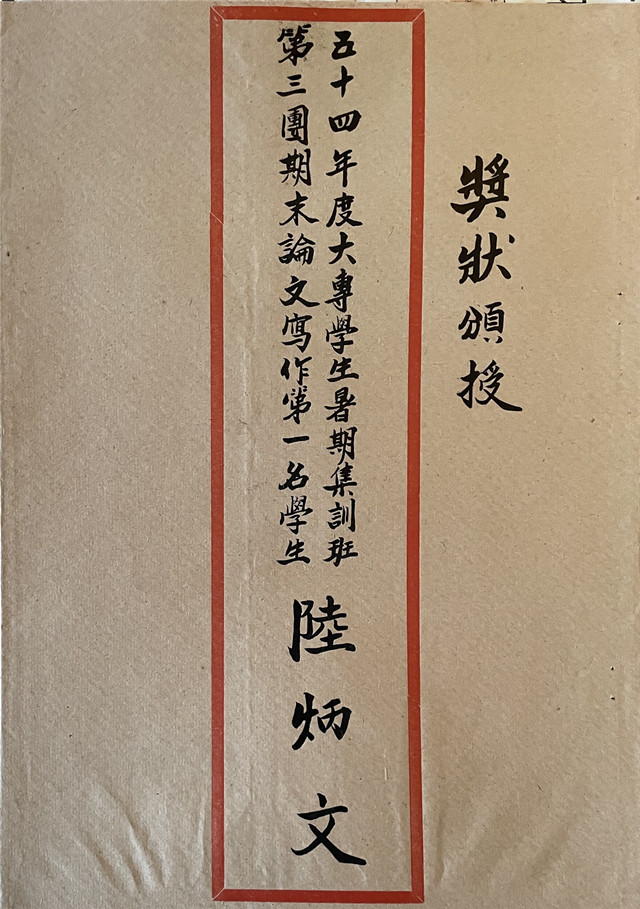 獎狀頒授
五十四年度大專學生暑期集訓班
第三團期末論文寫作第一名學生
陸炳文